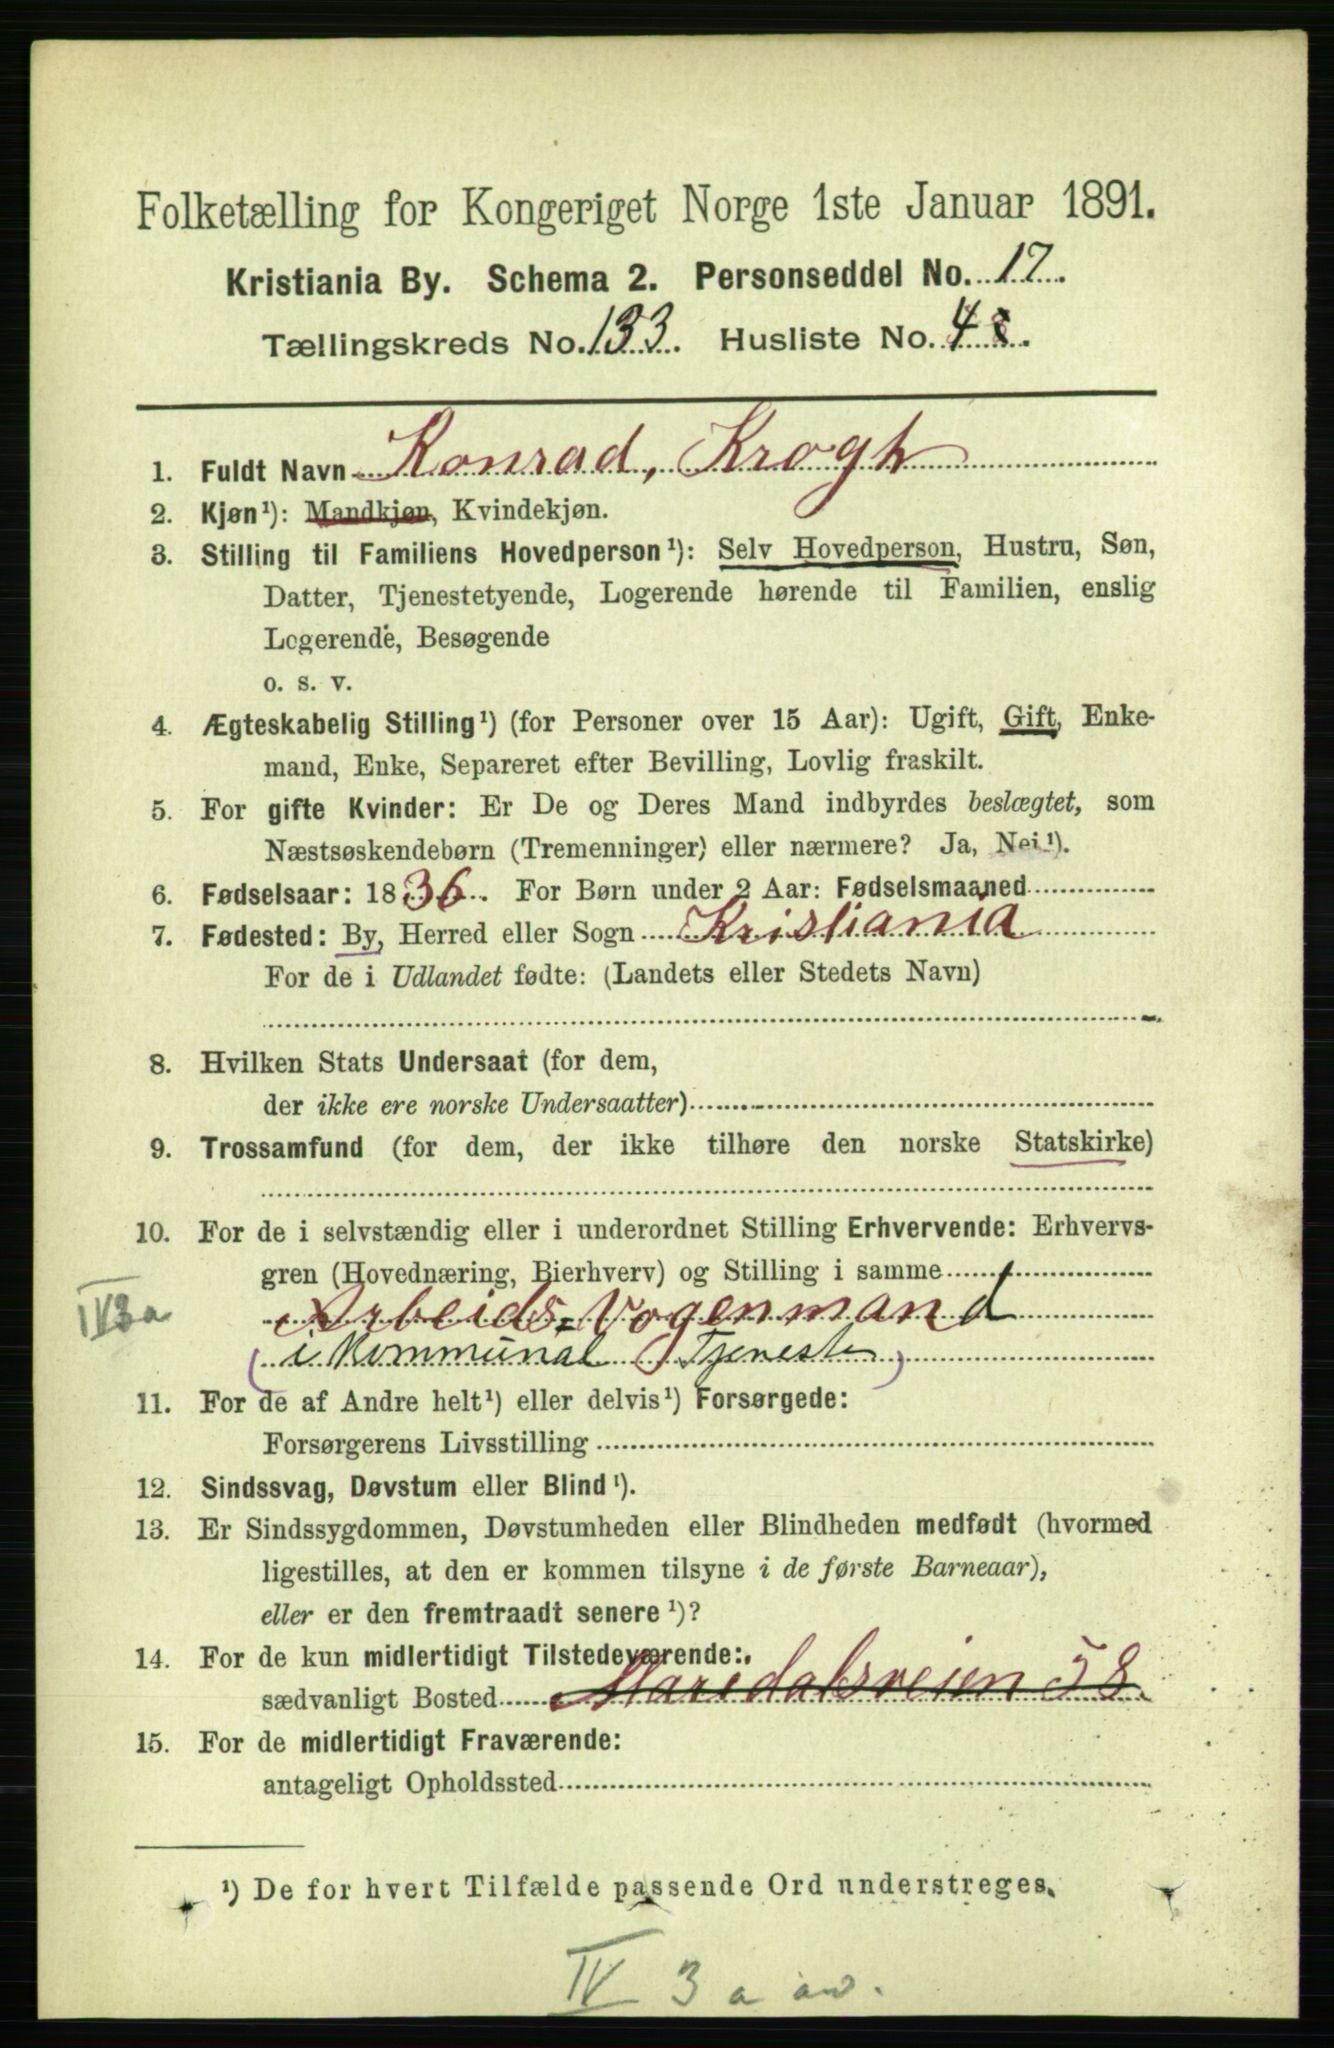 Folketælling for Kongeriget Norge 1ste Januar 1891.
Kristiania By. Schema 2. Personseddel No. 17.
Tællingskreds No. 133. Husliste No. 4.
1. Fuldt Navn Konrad, Krogh
2. Kjøn¹): Mandkjøn, Kvindekjøn.
3. Stilling til Familiens Hovedperson¹): Selv Hovedperson, Hustru, Søn,
Datter, Tjenestetyende, Logerende hørende til Familien, enslig
Logerende, Besøgende
o. s. v.
4. Ægteskabelig Stilling¹) (for Personer over 15 Aar): Ugift, Gift, Enke-
mand, Enke, Separeret efter Bevilling, Lovlig fraskilt.
5. For gifte Kvinder: Er De og Deres Mand indbyrdes beslægtet, som
Næstsøskendebørn (Tremenninger) eller nærmere? Ja, Nei¹).
6. Fødselsaar: 1836. For Børn under 2 Aar: Fødselsmaaned
7. Fødested: By, Herred eller Sogn Kristiania
For de i Udlandet fødte: (Landets eller Stedets Navn)
8. Hvilken Stats Undersaat (for dem,
der ikke ere norske Undersaatter)
9. Trossamfund (for dem, der ikke tilhøre den norske Statskirke)
10. For de i selvstændig eller i underordnet Stilling Erhvervende: Erhvervs-
gren (Hovednæring, Bierhverv) og Stilling i samme
IV3a Arbeids-Vogenmand
(i Kommunal Tjeneste)
11. For de af Andre helt¹) eller delvis¹) Forsørgede:
Forsørgerens Livsstilling
12. Sindssvag, Døvstum eller Blind¹).
13. Er Sindssygdommen, Døvstumheden eller Blindheden medfødt (hvormed
ligestilles, at den er kommen tilsyne i de første Barneaar),
eller er den fremtraadt senere¹)?
14. For de kun midlertidigt Tilstedeværende:
sædvanligt Bosted Maridalsveien 58.
15. For de midlertidigt Fraværende:
antageligt Opholdssted
¹) De for hvert Tilfælde passende Ord understreges.
IV 3 a